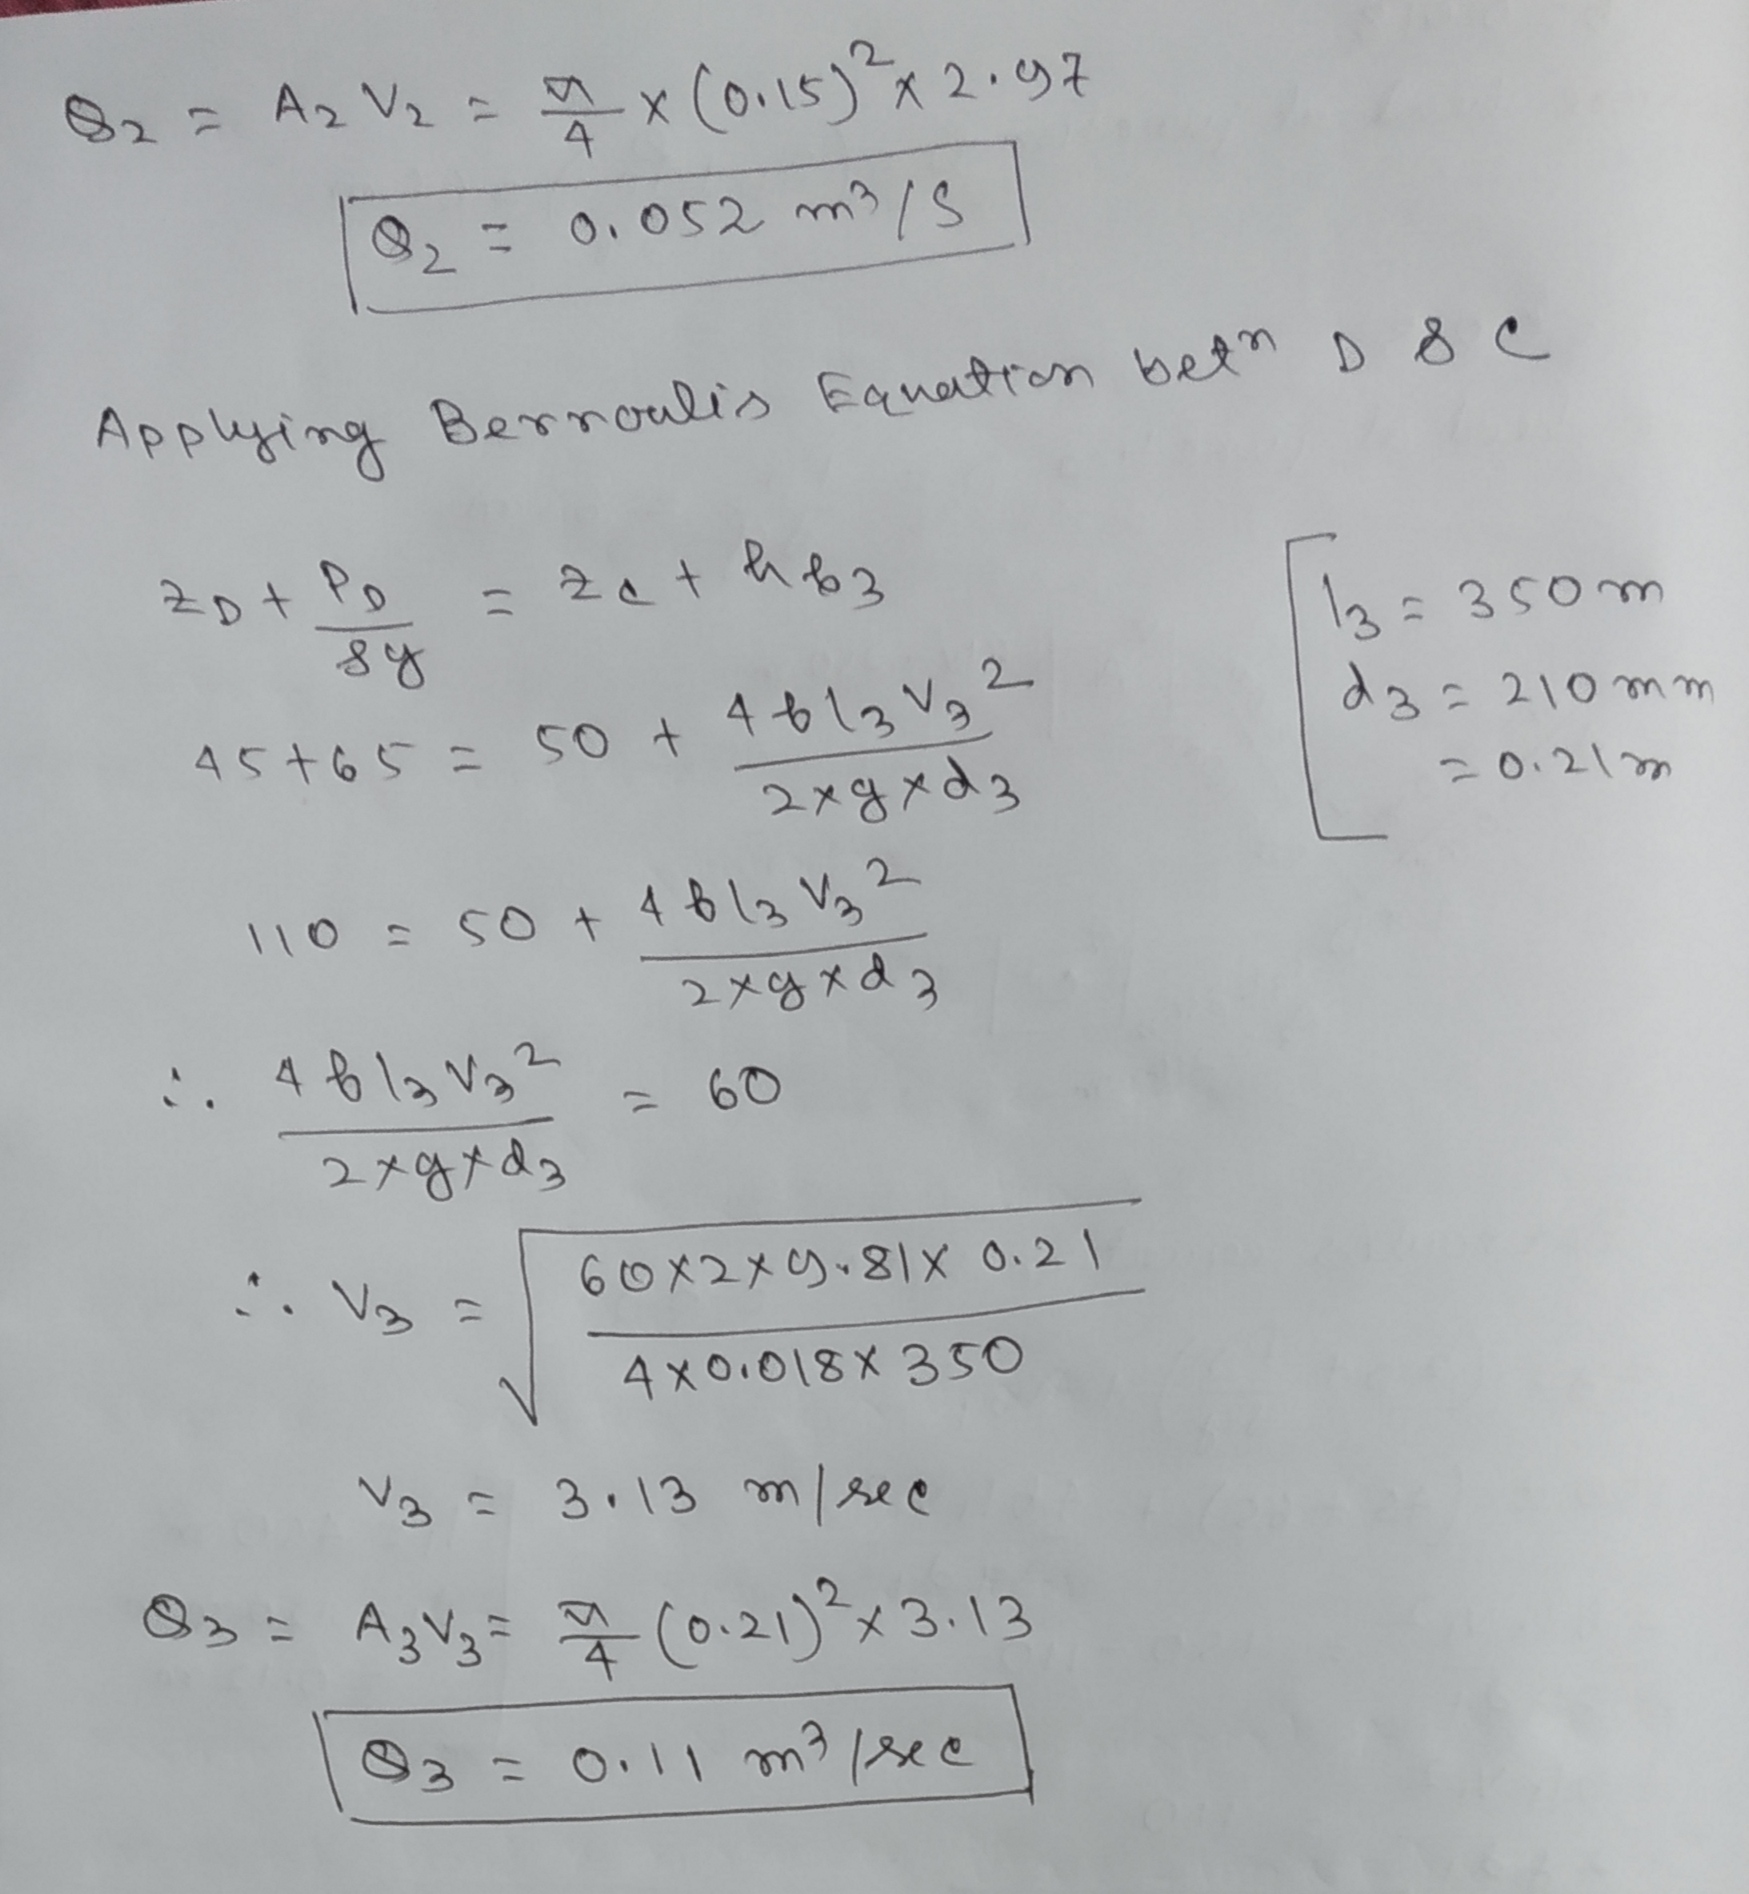 Q₂ = A₂ V₂ = π/4 × (0.15)² × 2.97
Q₂ = 0.052 m³/s
Applying Bernoulis Equation betn D & C
z_D + P_D/ρg = z_c + hf₃
l₃ = 350 m
45 + 65 = 50 + 4fl₃V₃²/2×g×d₃
d₃ = 210 mm
= 0.21 m
110 = 50 + 4fl₃V₃²/2×g×d₃
∴ 4fl₃V₃²/2×g×d₃ = 60
∴ V₃ = √(60×2×9.81×0.21/4×0.018×350)
V₃ = 3.13 m/sec
Q₃ = A₃V₃ = π/4 (0.21)² × 3.13
Q₃ = 0.11 m³/sec